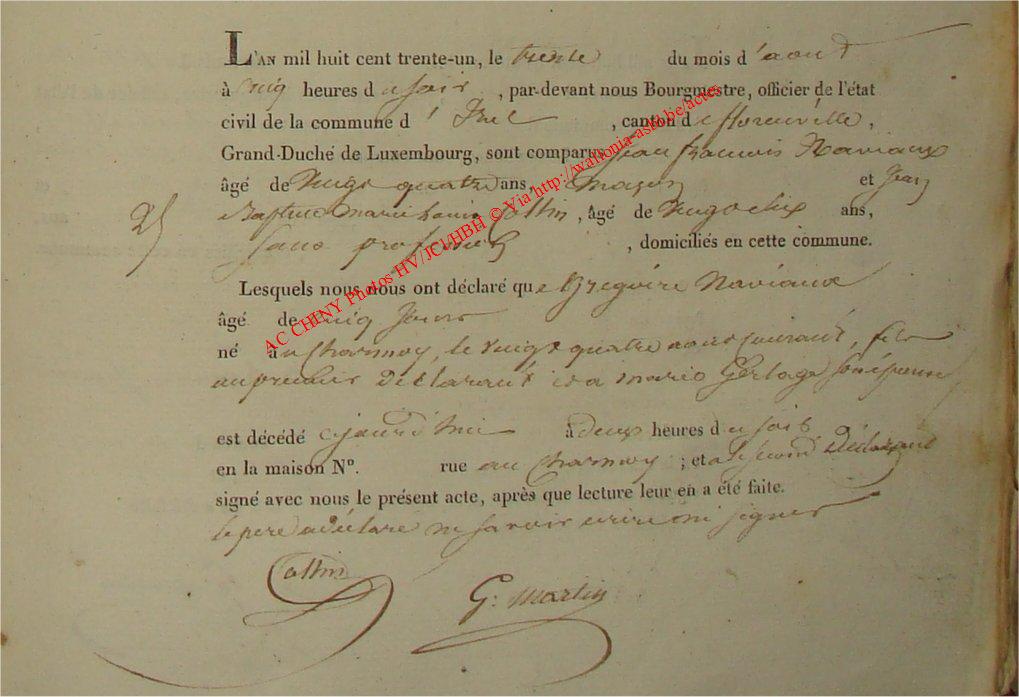 L'AN mil huit cent trente-un, le trente du mois d'aout
à cinq heures du soir, par-devant nous Bourgmestre, officier de l'état
civil de la commune d' Izel, canton de florenville,
Grand-Duché de Luxembourg, sont comparus jean francois Naviaux
âgé de vingt quatre ans, maçon et jean
Baptiste marie Louis Collin, âgé de ans,
25
sans profession, domiciliés en cette commune.
Lesquels nous nous ont déclaré que Grégoire Naviaux
âgé de cinq jours
né au charmoy, le vingt quatre aout courant, fils
au premier Déclarant et a marie Gerlage son épouse
est décédé cejourd'hui à deux heures du soir
en la maison N°. rue au charmoy; et a le second Déclarant
signé avec nous le présent acte, après que lecture leur en a été faite.
le pere a déclaré ne savoir ecrire ni signer
Collin
G. Martin
AC CHINY Photos HV/JCl/HBH © Via http://wallonia-asbl.be/actes